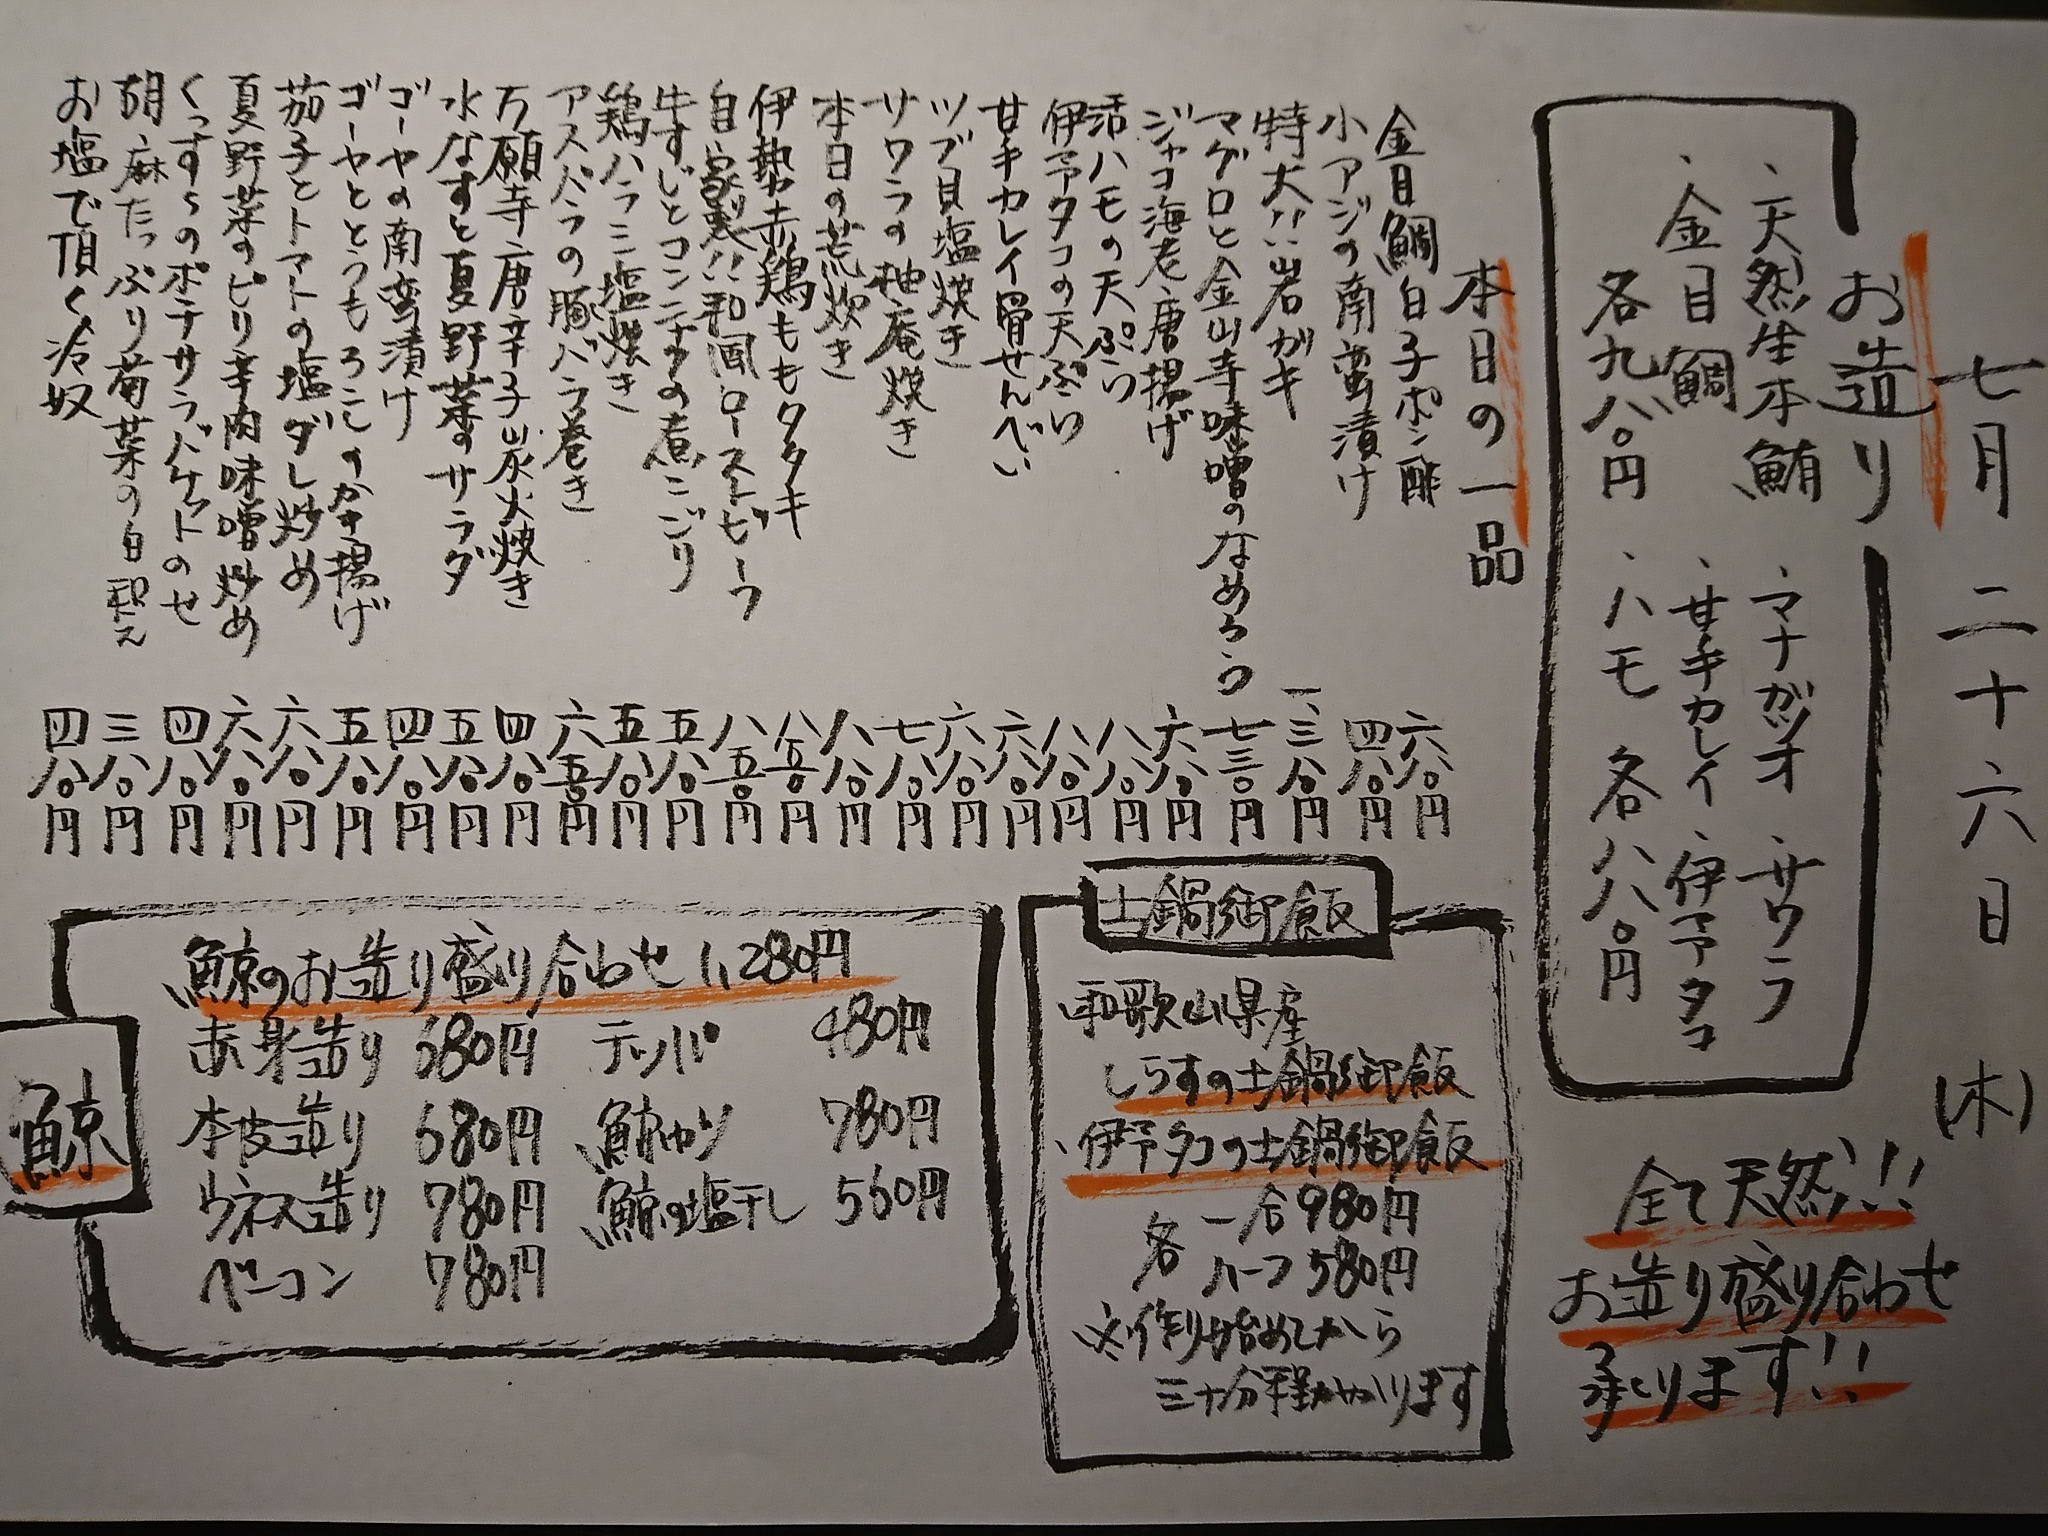 七月二十六日(木)
お造り
、天然生本鮪
、金目鯛
各九八〇円
、マナガツオ
、サワラ
、甘手カレイ
、伊予タコ
、ハモ 各八八〇円
全て天然!!
お造り盛り合わせ
承ります!!
本日の一品
金目鯛白子ポン酢 六八〇円
小アジの南蛮漬け 四八〇円
特大!!岩ガキ 一、三八〇円
マグロと金山寺味噌のなめろう 七三〇円
ジャコ海老唐揚げ 六八〇円
活ハモの天ぷら 八八〇円
伊予タコの天ぷら 八八〇円
甘手カレイ骨せんべい 六八〇円
ツブ貝塩焼き 六八〇円
サワラの柚庵焼き 七八〇円
本日の荒炊き 八八〇円
伊勢赤鶏ももタタキ 八五〇円
自家製!!和風ローストビーフ 八五〇円
牛すじとコンニャクの煮こごり 五八〇円
鶏ハラミ塩焼き 五八〇円
アスパラの豚バラ巻き 六五〇円
万願寺唐辛子炭火焼き 四八〇円
水なすと夏野菜のサラダ 五八〇円
ゴーヤの南蛮漬け 四八〇円
ゴーヤととうもろこしのかき揚げ 五八〇円
茄子とトマトの塩ダレ炒め 六八〇円
夏野菜のピリ辛肉味噌炒め 六八〇円
くっすらのポテサラバケットのせ 四八〇円
胡麻たっぷり菊菜の白和え 三八〇円
お塩で頂く冷奴 四八〇円
土鍋御飯
和歌山県産
しらすの土鍋御飯
、伊予タコの土鍋御飯
各 一合980円
ハーフ580円
※作り始めてから
三十分程かかります
鯨
鯨のお造り盛り合わせ 1,280円
赤身造り 680円 テッパ 480円
本皮造り 680円 鯨カツ 780円
ウネス造り 780円 鯨の塩干し 560円
ベーコン 780円